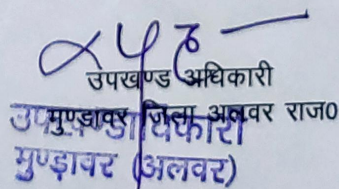 उपखण्ड अधिकारी
मुण्डावर जिला अलवर राज0
उपखण्डाधिकारी
मुण्डावर (अलवर)